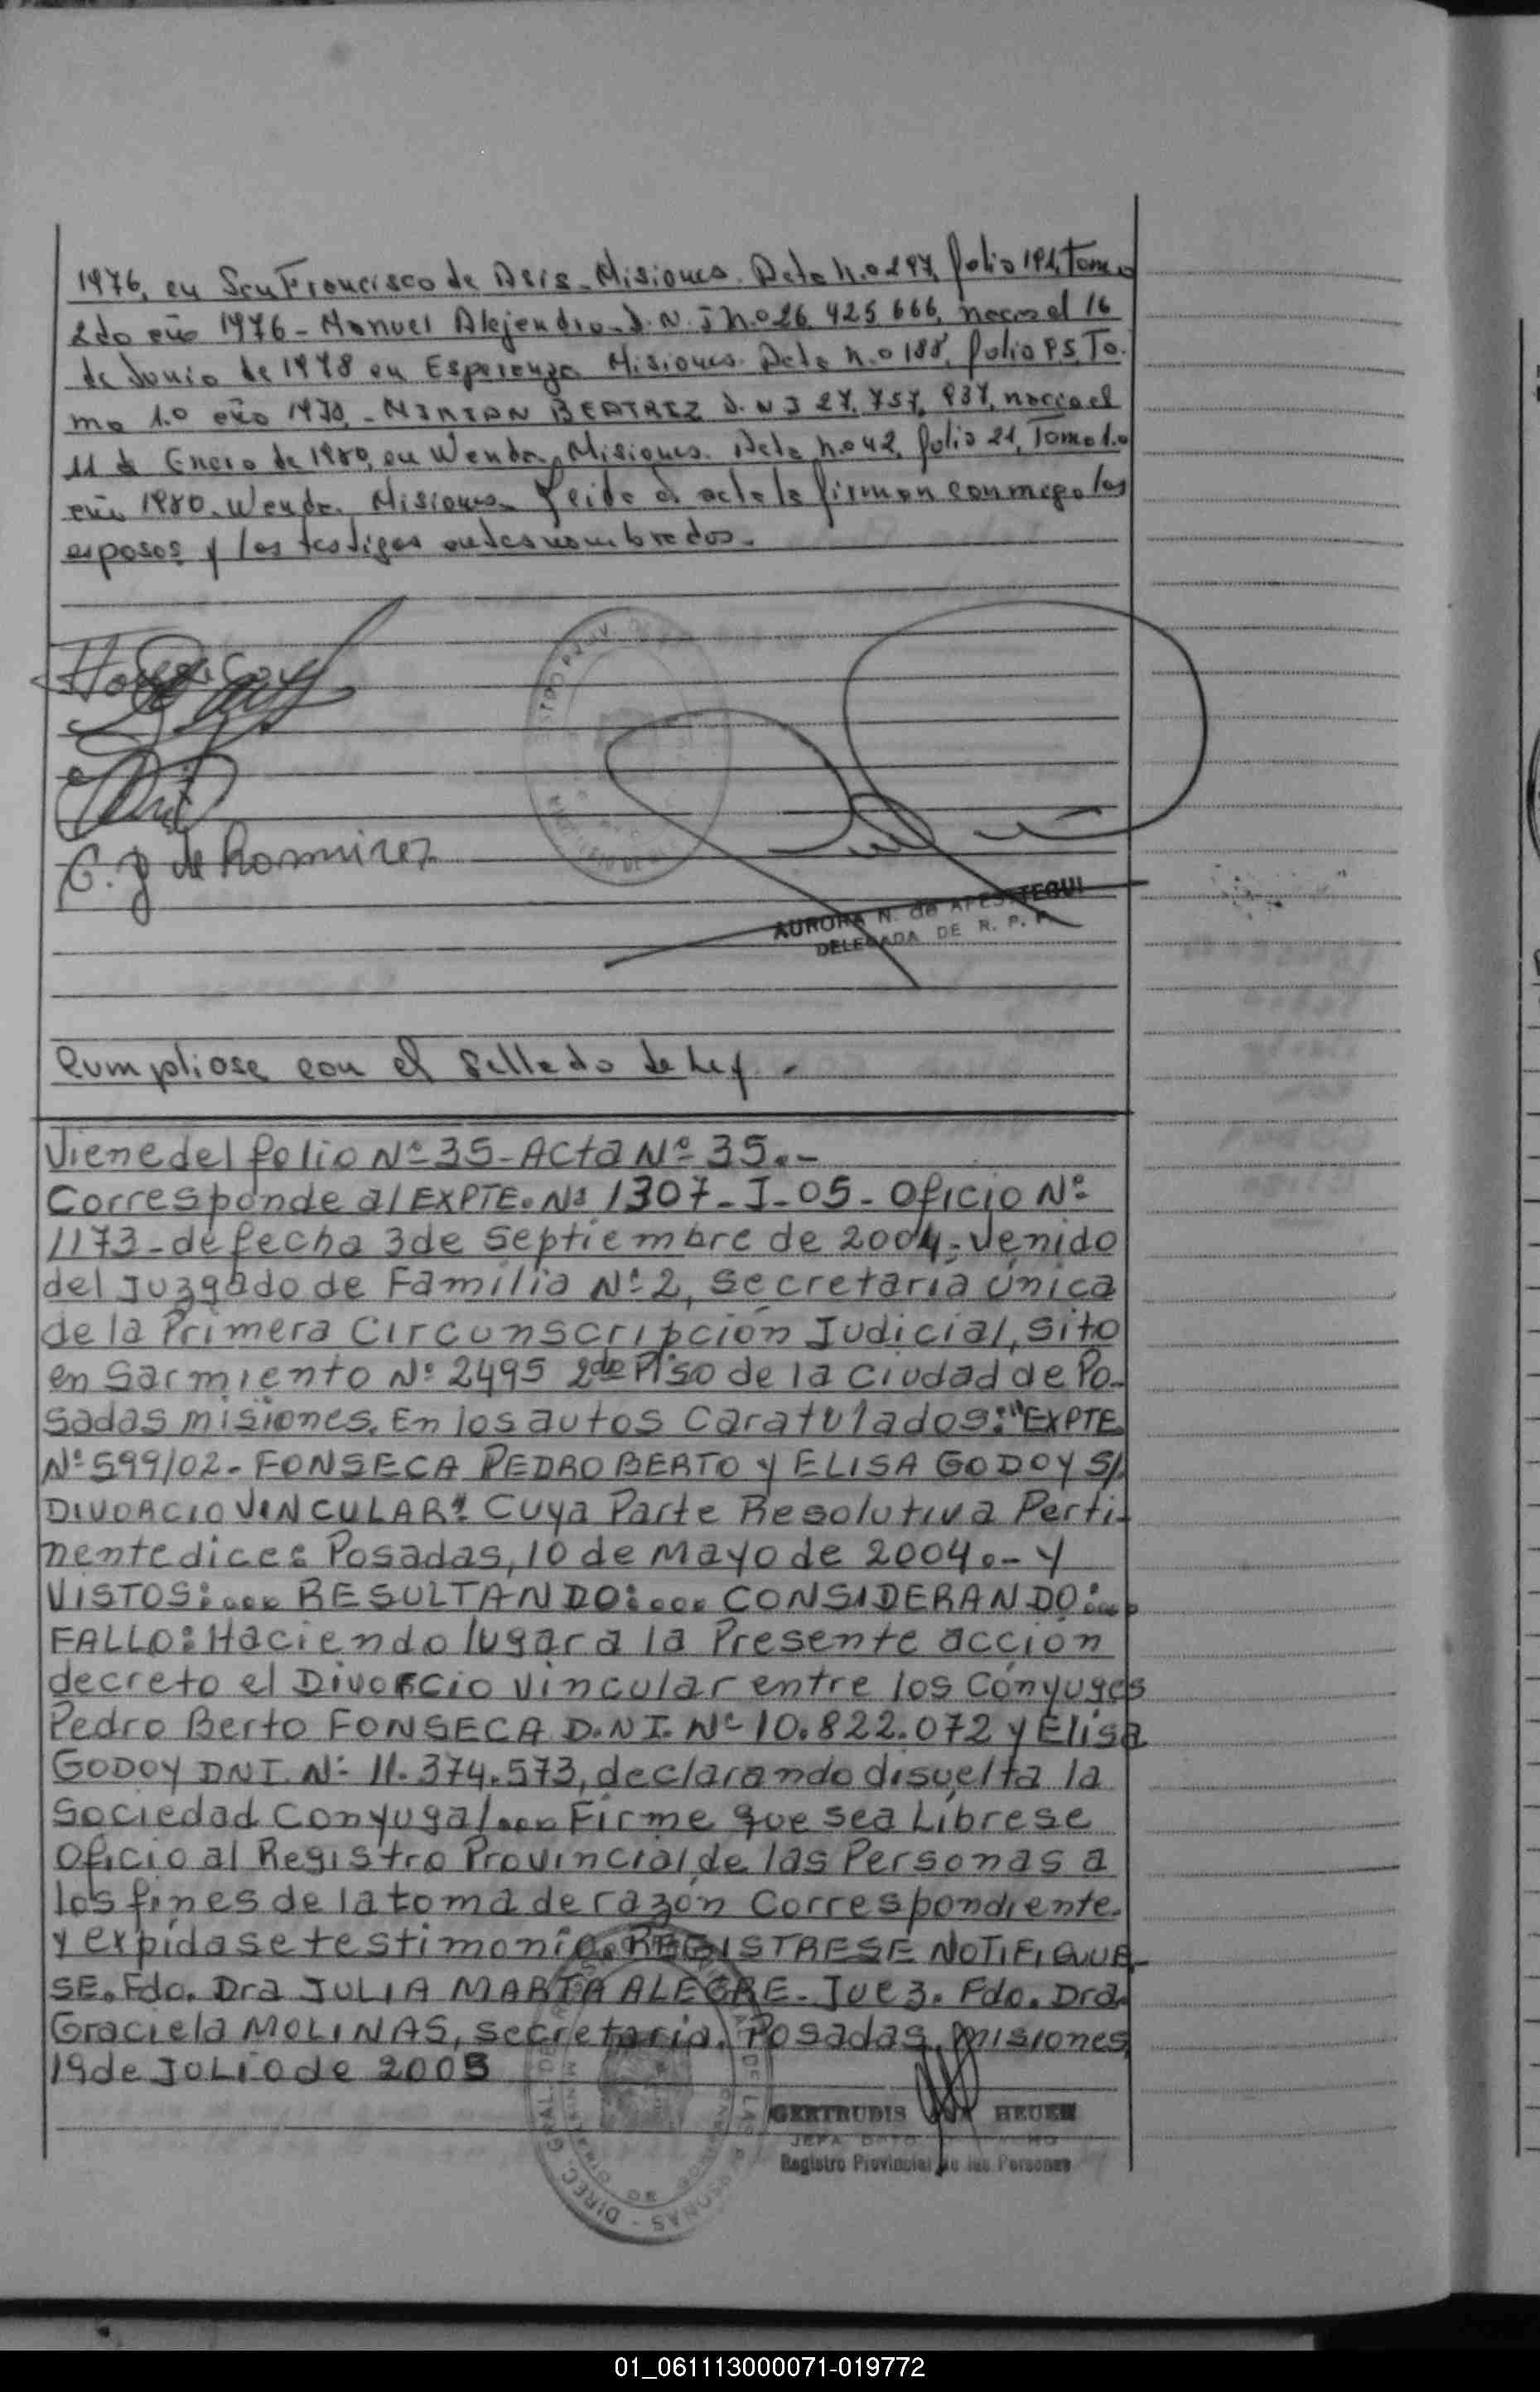 1976, en San Francisco de Asis - Misiones. Acta n.o 297, folio 191, Tomo
2do año 1976 - Manuel Alejandro D.N.I n.o 26.425.666, nacio el 16
de Junio de 1978 en Esperanza Misiones. Acta n.o 188, folio 95, To.
mo 1.o año 1978, - MIRIAN BEATRIZ D.N I 27.757.837, nacio el
11 de Enero de 1980, en Wanda, Misiones. Acta n.o 42, folio 21, Tomo 1.o
año 1980. Wanda. Misiones. Leida el acta la firman conmigo los
esposos y los testigos antes nombrados.
C. J de Ramirez
AURORA N. de APESTEGUI
DELEGADA DE R. P. P.
Cumpliose con el Sellado de Ley. -
Viene del folio Nº 35 - Acta Nº 35.-
Corresponde al EXPTE. Nº 1307-I-05- Oficio Nº
1173 - de fecha 3 de Septiembre de 2004, - venido
del Juzgado de Familia Nº 2, Secretaria Única
de la Primera Circunscripción Judicial, sito
en Sarmiento Nº 2495 2do Piso de la Ciudad de Po-
sadas misiones. En los autos Caratulados: "EXPTE
Nº 599/02 - FONSECA PEDRO BERTO y ELISA GODOY S/
DIVORCIO VINCULAR". Cuya Parte Resolutiva Perti-
nente dice: Posadas, 10 de Mayo de 2004.- Y
VISTOS:... RESULTANDO:... CONSIDERANDO:...
FALLO: Haciendo lugar a la Presente acción
decreto el Divorcio Vincular entre los Cónyuges
Pedro Berto FONSECA D.N.I. Nº 10.822.072 y Elisa
GODOY DNI. Nº 11.374.573, declarando disuelta la
Sociedad Conyugal... Firme que sea Líbrese
Oficio al Registro Provincial de las Personas a
los fines de la toma de razón Correspondiente.
y expidase testimonio. REGISTRESE NOTIFIQUE-
SE. Fdo. Dra JULIA MARTA ALEGRE. Juez. Fdo. Dra.
Graciela MOLINAS, Secretaria. Posadas, Misiones,
19 de JULIO de 2005
GERTRUDIS HEUER
JEFA DPTO
Registro Provincial de las Personas
01_061113000071-019772